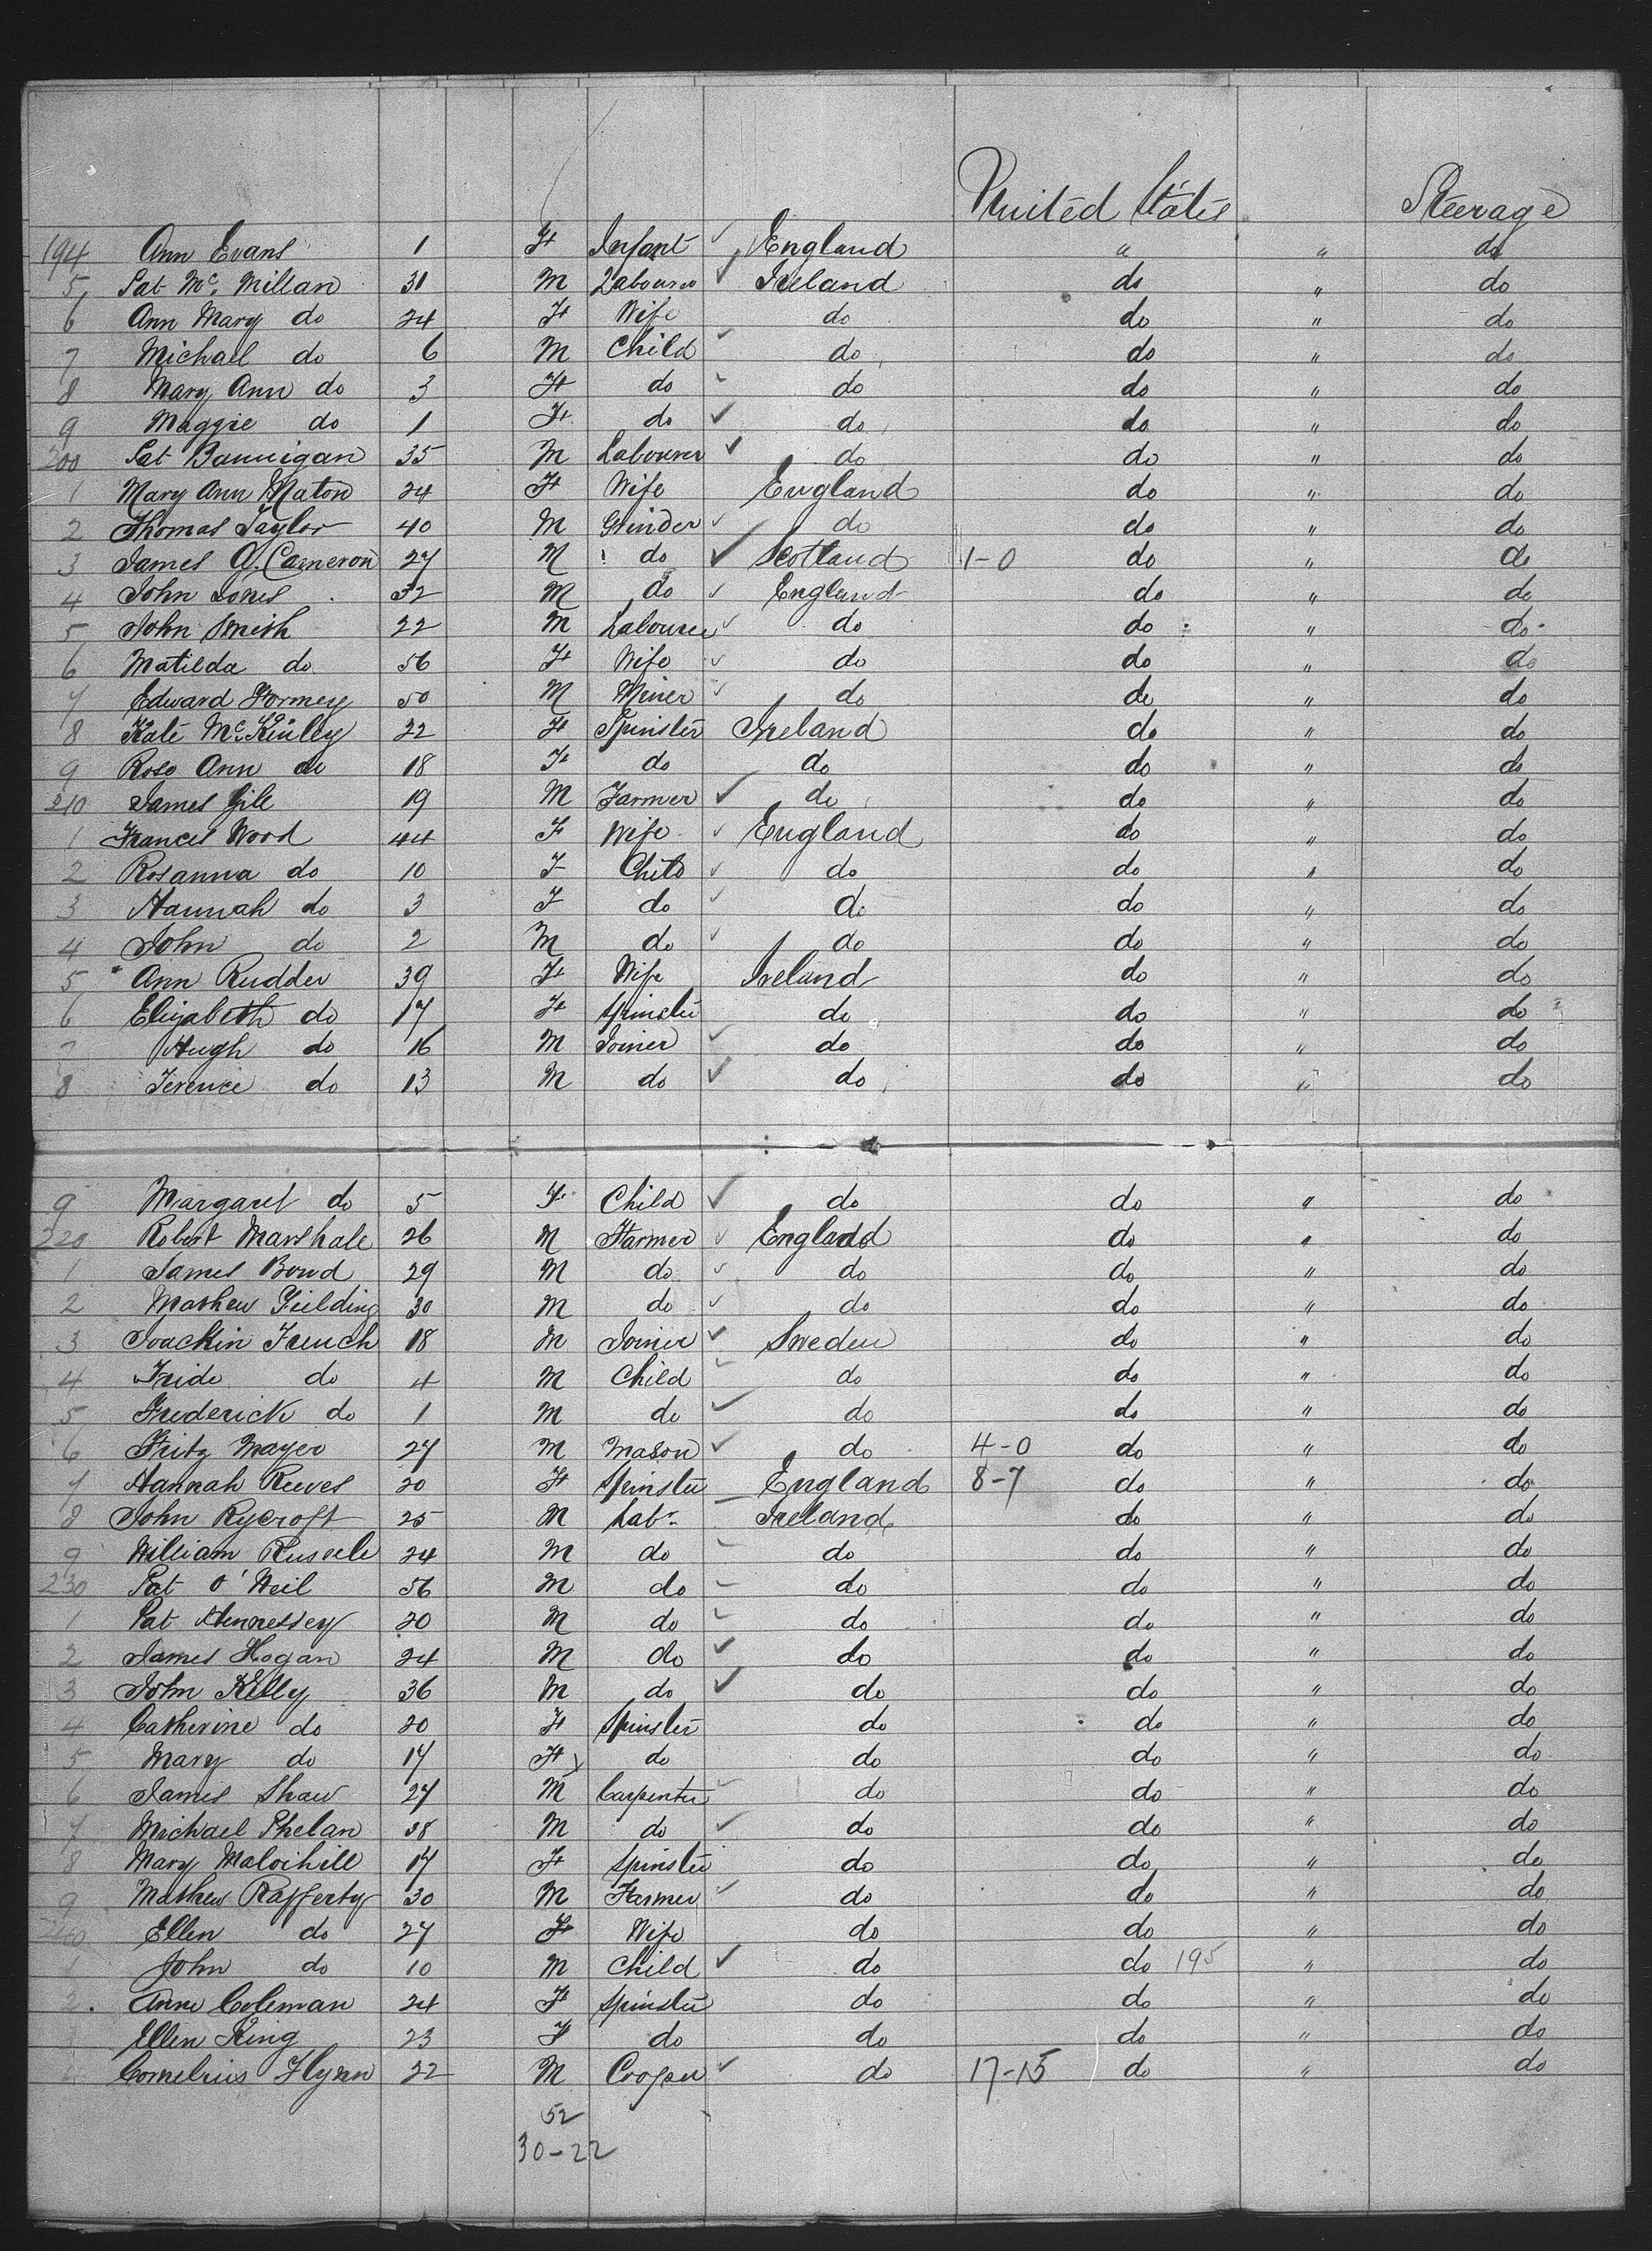 United States Steerage
194 Ann Evans 1 F Infant England " " do
5 Pat McMillan 31 M Labourer Ireland do " do
6 Ann Mary do 24 F Wife do do " do
7 Michael do 6 M Child do do " do
8 Mary Ann do 3 F do do do " do
9 Maggie do 1 F do do do " do
200 Pat Bannigan 35 M Labourer do do " do
1 Mary Ann Naton 24 F Wife England do " do
2 Thomas Taylor 40 M Grinder do do " do
3 James A. Cameron 27 M do Scotland 1-0 do " do
4 John Jones 32 M do England do " do
5 John Smith 22 M Labourer do do " do
6 Matilda do 56 F Wife do do " do
7 Edward Formey 50 M Miner do do " do
8 Kate McKinley 22 F Spinster Ireland do " do
9 Rose Ann do 18 F do do do " do
210 James Gile 19 M Farmer do do " do
1 Frances Wood 44 F Wife England do " do
2 Rosanna do 10 F Child do do " do
3 Hannah do 3 F do do do " do
4 John do 2 M do do do " do
5 Ann Rudder 39 F Wife Ireland do " do
6 Elizabeth do 17 F Spinster do do " do
7 Hugh do 16 M Joiner do do " do
8 Terence do 13 M do do do " do
9 Margaret do 5 F Child do do " do
220 Robert Marshall 26 M Farmer England do " do
1 James Bond 29 M do do do " do
2 Mathew Fielding 30 M do do do " do
3 Joackin French 18 M Joiner Sweden do " do
4 Fride do 4 M Child do do " do
5 Frederick do 1 M do do do " do
6 Fritz Mayer 27 M Mason do 4-0 do " do
7 Hannah Reeves 20 F Spinster England 8-7 do " do
8 John Rycroft 25 M Labr Ireland do " do
9 William Russele 24 M do do do " do
230 Pat O'Neil 56 M do do do " do
1 Pat Hennessey 20 M do do do " do
2 James Hogan 24 M do do do " do
3 John Kelly 36 M do do do " do
4 Catherine do 20 F Spinster do do " do
5 Mary do 17 F do do do " do
6 James Shaw 27 M Carpenter do do " do
7 Michael Phelan 38 M do do do " do
8 Mary Malvihill 17 F Spinster do do " do
9 Mathew Rafferty 30 M Farmer do do " do
240 Ellen do 27 F Wife do do " do
1 John do 10 M Child do do 195 " do
2 Anne Coleman 24 F Spinster do do " do
3 Ellen King 23 F do do do " do
4 Cornelius Flynn 22 M Cooper do 17-15 do " do
52
30-22